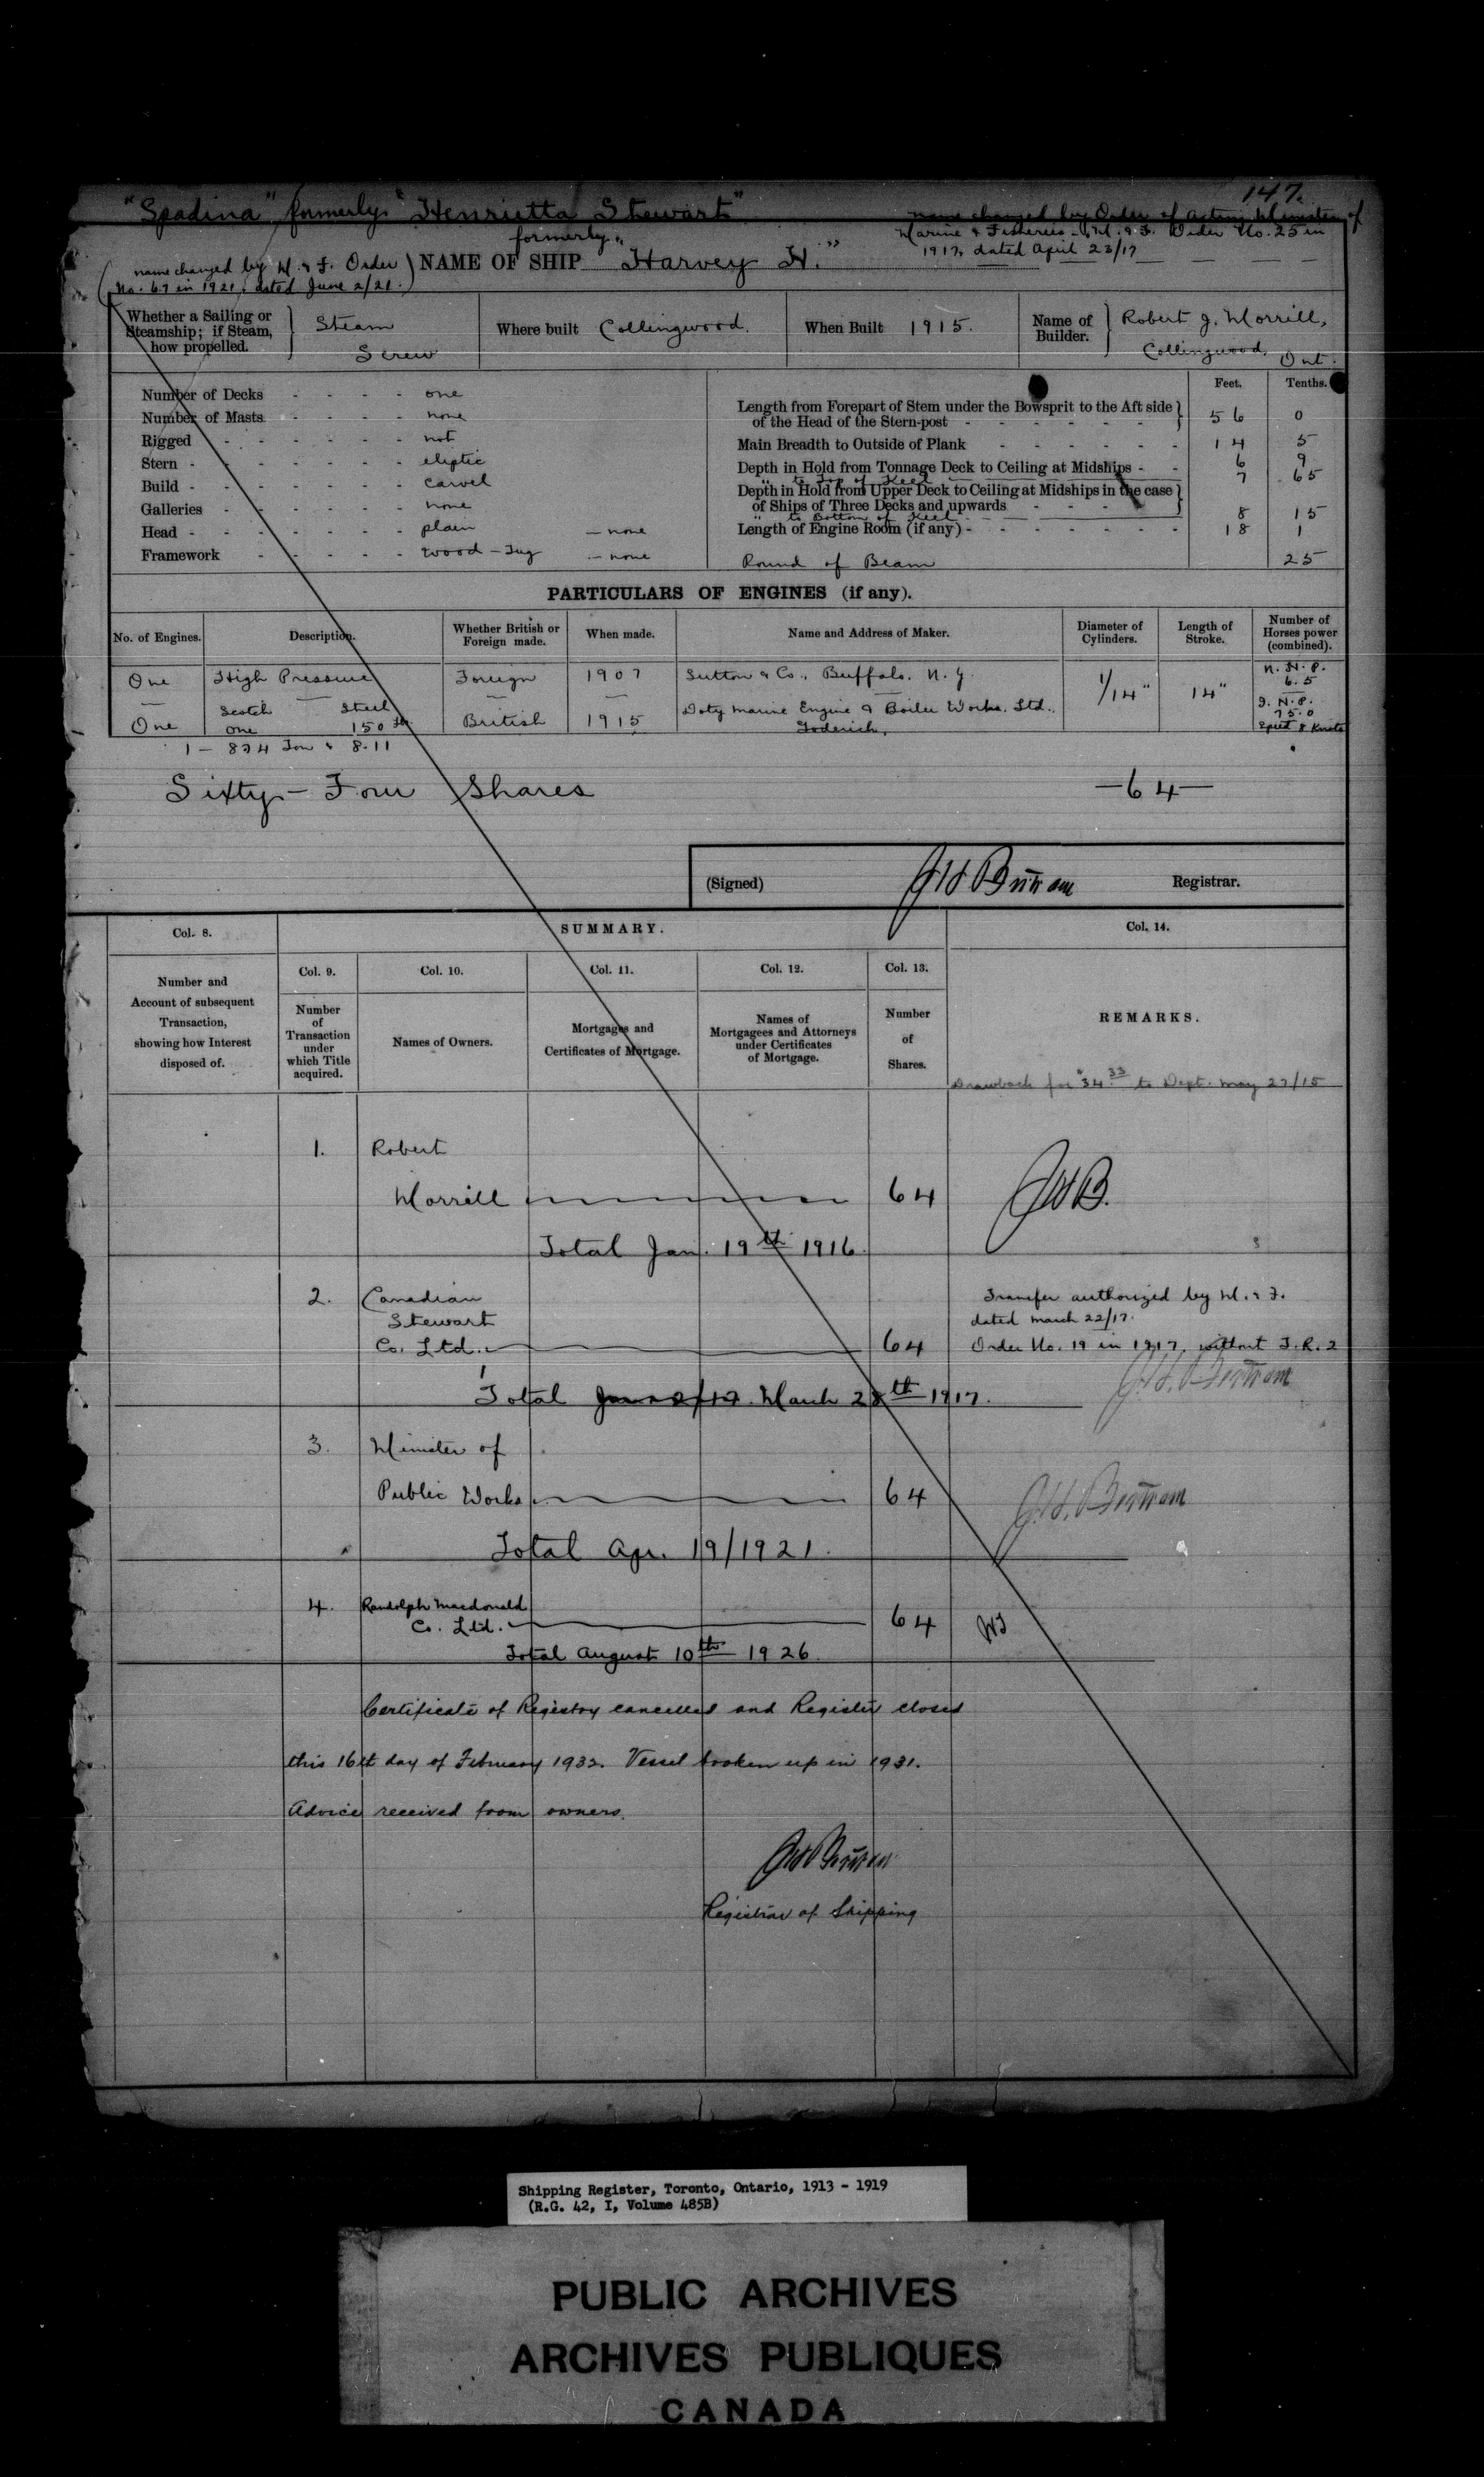 147.
"Spadina" formerly "Henrietta Stewart"
name changed by Order of Acting Minister of
Marine & Fisheries - M. & F. Order No. 25 in
1917, dated April 23/17
formerly
(name changed by M. & F. Order
No. 67 in 1921, dated June 2/21.)
NAME OF SHIP "Harvey H."
Whether a Sailing or Steamship; if Steam, how propelled. Steam Screw
Where built Collingwood.
When Built 1915.
Name of Builder. Robert J. Morrill, Collingwood, Ont.
Feet. Tenths.
Number of Decks - one
Number of Masts - none
Rigged - not
Stern - eliptic
Build - carvel
Galleries - none
Head - plain - none
Framework - wood - Tug - none
Length from Forepart of Stem under the Bowsprit to the Aft side of the Head of the Stern-post 56 0
Main Breadth to Outside of Plank 14 5
Depth in Hold from Tonnage Deck to Ceiling at Midships 6 9
" to Top of Keel 7 65
Depth in Hold from Upper Deck to Ceiling at Midships in the case of Ships of Three Decks and upwards
" to Bottom of Keel 8 15
Length of Engine Room (if any) 18 1
Round of Beam 25
PARTICULARS OF ENGINES (if any).
No. of Engines. Description. Whether British or Foreign made. When made. Name and Address of Maker. Diameter of Cylinders. Length of Stroke. Number of Horses power (combined).
One High Pressure Foreign 1907 Sutton & Co., Buffalo, N.Y. 1/14" 14" N.H.P. 6.5
One Scotch Steel one 150 lb. British 1915 Doty Marine Engine & Boiler Works, Ltd., Goderich. I.H.P. 75.0
Speed 8 Knots
Sixty-Four Shares -64-
(Signed) JH Bertram Registrar.
Col. 8. SUMMARY. Col. 14.
Col. 9. Col. 10. Col. 11. Col. 12. Col. 13.
Number and Account of subsequent Transaction, showing how Interest disposed of.
Number of Transaction under which Title acquired.
Names of Owners.
Mortgages and Certificates of Mortgage.
Names of Mortgagees and Attorneys under Certificates of Mortgage.
Number of Shares.
REMARKS.
Drawback for $34.33 to Dept. May 27/15
1. Robert
Morrill 64 JHB.
Total Jan. 19th 1916.
2. Canadian
Stewart
Co. Ltd. 64
Transfer authorized by M. & F.
dated March 22/17.
Order No. 19 in 1917, without T.R. 2
J.H. Bertram
Total March 28th 1917.
3. Minister of
Public Works 64 J.H. Bertram
Total Apr. 19/1921.
4. Randolph Macdonald
Co. Ltd. 64
Total August 10th 1926.
Certificate of Registry cancelled and Register closed
this 16th day of February 1932. Vessel broken up in 1931.
Advice received from owners.
JH Bertram
Registrar of Shipping
Shipping Register, Toronto, Ontario, 1913 - 1919
(R.G. 42, I, Volume 485B)
PUBLIC ARCHIVES
ARCHIVES PUBLIQUES
CANADA